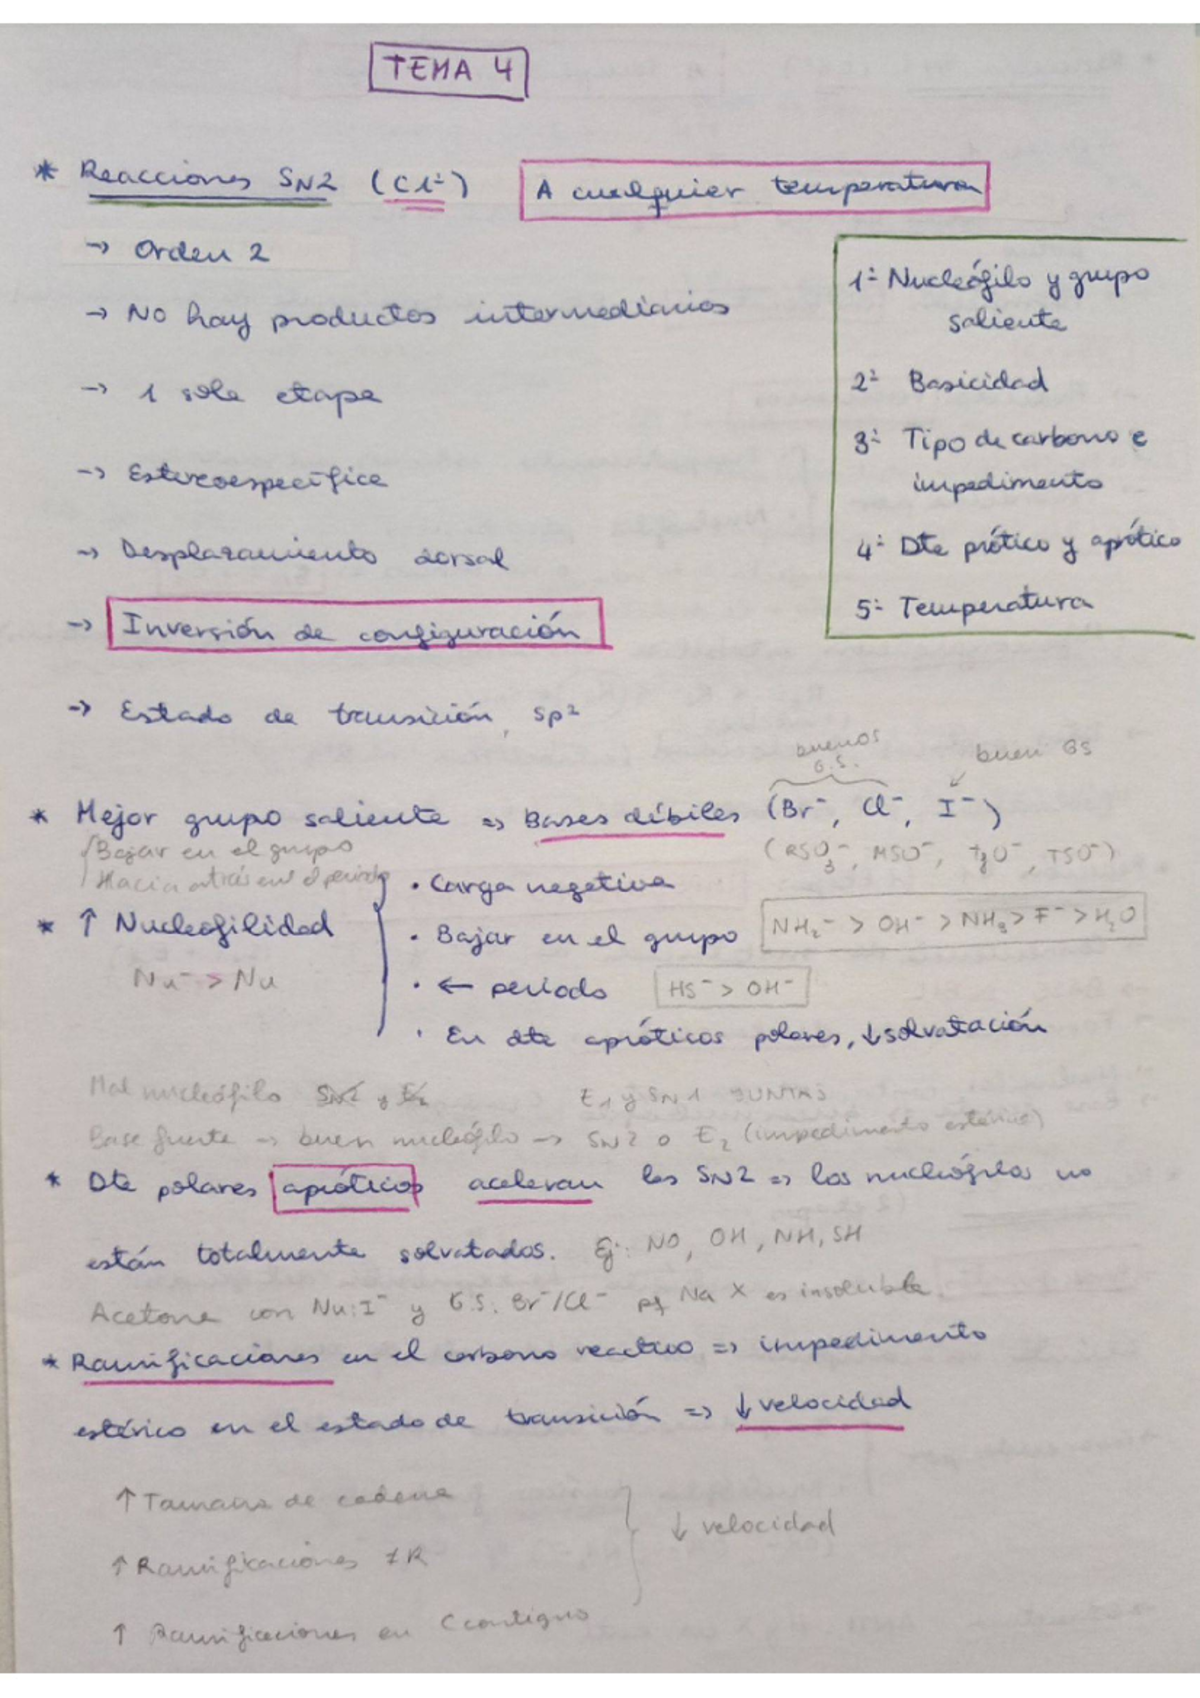 TEMA 4
* Reacciones SN2 (C1º) A cualquier temperatura
→ Orden 2
→ No hay productos intermediarios
→ 1 sola etapa
→ Estereoespecífica
→ Desplazamiento dorsal
→ Inversión de configuración
→ Estado de transición, sp²
1º Nucleófilo y grupo
saliente
2º Basicidad
3º Tipo de carbono e
impedimento
4º Dte prótico y aprótico
5º Temperatura
buenos
G.S.
buen GS
* Mejor grupo saliente => Bases débiles (Br⁻, Cl⁻, I⁻)
(RSO₃⁻, MSO⁻, TfO⁻, TSO⁻)
Bajar en el grupo
Hacia atrás en el periodo
* ↑ Nucleofilidad
Nu⁻ > Nu
· Carga negativa
· Bajar en el grupo NH₂⁻ > OH⁻ > NH₃ > F⁻ > H₂O
· ← periodo HS⁻ > OH⁻
· En dte apróticos polares, ↓ solvatación
Mal nucleófilo SN2 y E2 E1 y SN1 JUNTAS
Base fuerte → buen nucleófilo → SN2 o E2 (impedimento estérico)
* Dte polares apróticos aceleran las SN2 => los nucleófilos no
están totalmente solvatados. Ej: NO, OH, NH, SH
Acetona con Nu: I⁻ y G.S: Br⁻/Cl⁻ pq Na X es insoluble.
* Ramificaciones en el carbono reactivo => impedimento
estérico en el estado de transición => ↓ velocidad
↑ Tamaño de cadena
↑ Ramificaciones ≠ R
↑ Ramificaciones en C contiguo
↓ velocidad